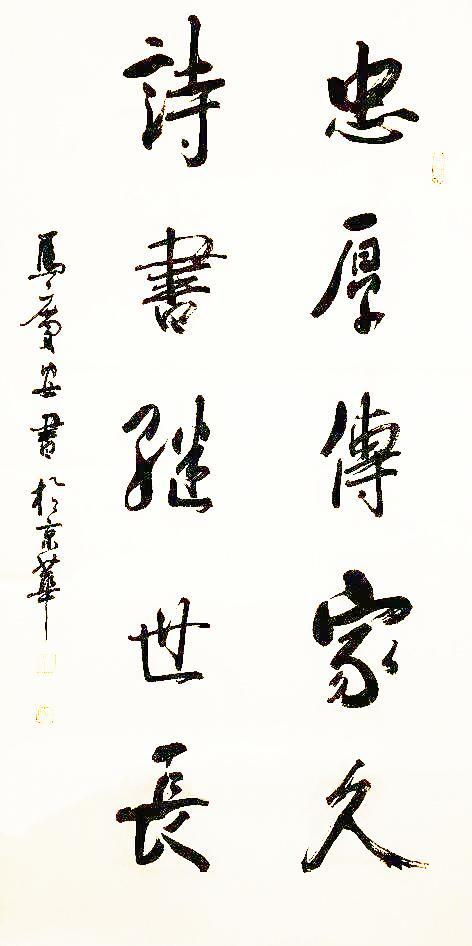 忠厚傳家久
詩書継世長
馬廣安書於京華